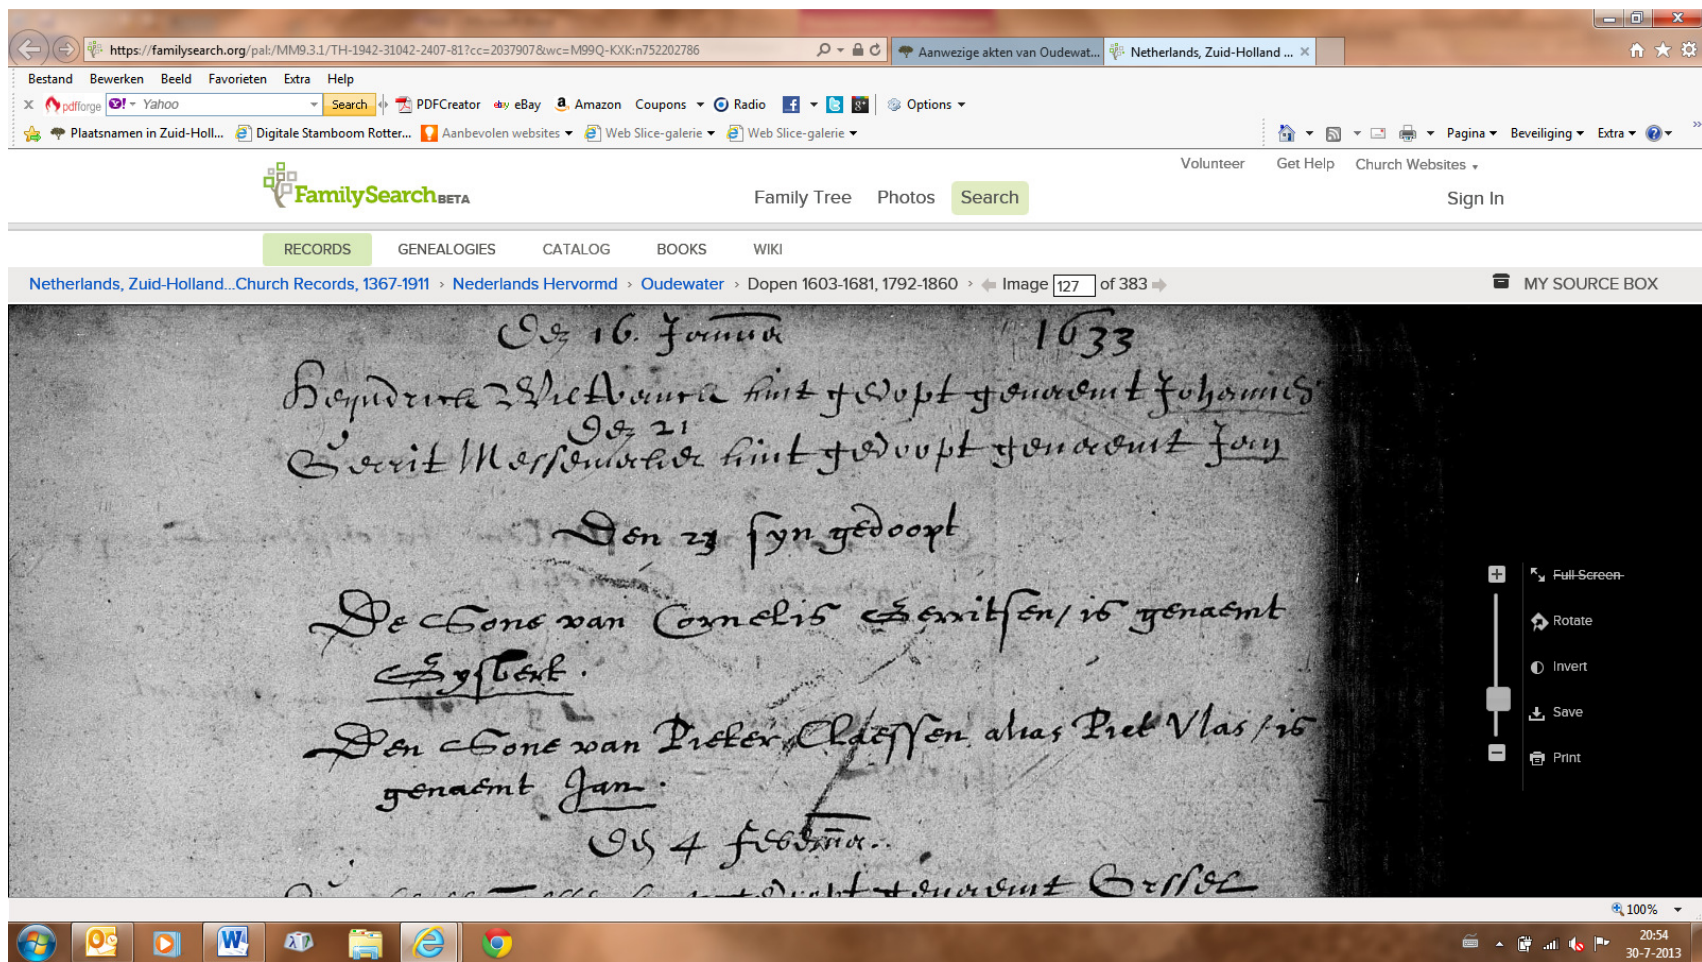 https://familysearch.org/pal:/MM9.3.1/TH-1942-31042-2407-81?cc=2037907&wc=M99Q-KXK:n752202786
Aanwezige akten van Oudewat...
Netherlands, Zuid-Holland ...
Bestand Bewerken Beeld Favorieten Extra Help
pdfforge Yahoo Search PDFCreator eBay Amazon Coupons Radio Options
Plaatsnamen in Zuid-Holl... Digitale Stamboom Rotter... Aanbevolen websites Web Slice-galerie Web Slice-galerie Pagina Beveiliging Extra
Volunteer Get Help Church Websites
FamilySearch BETA Family Tree Photos Search Sign In
RECORDS GENEALOGIES CATALOG BOOKS WIKI
Netherlands, Zuid-Holland...Church Records, 1367-1911 › Nederlands Hervormd › Oudewater › Dopen 1603-1681, 1792-1860 › Image 127 of 383 MY SOURCE BOX
16. Janua 1633
Heyndrick kint gedopt genaemt Johannes
21
Gerrit Messemaker kint gedoopt genaemt Jan
Den 23 syn gedoopt
De Sone van Cornelis Gerritsen / is genaemt
Gysbert.
Den Sone van Pieter Claessen alias Piet Vlas / is
genaemt Jan.
4
genaemt
Full Screen
Rotate
Invert
Save
Print
100%
20:54
30-7-2013